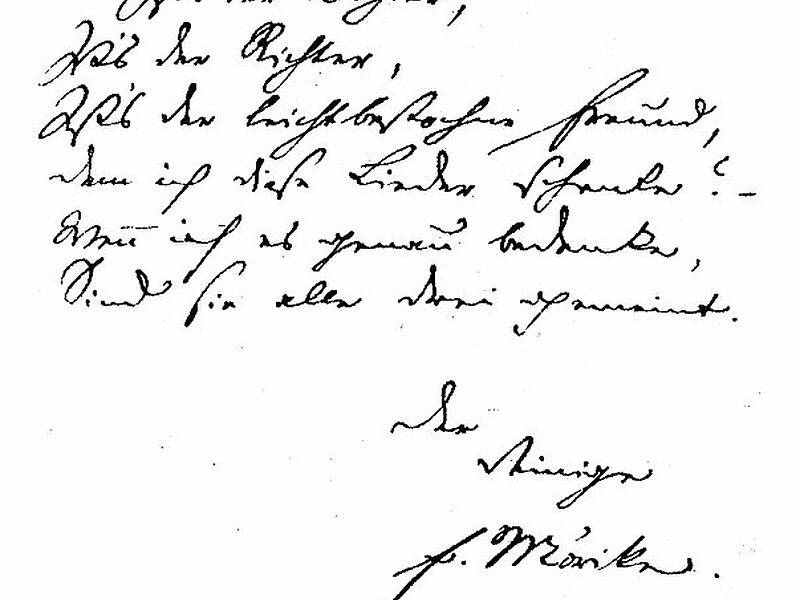 Ist's der Richter,
Ist's der leichtbestochne Freund,
dem ich diese Lieder schenke? –
Weñ ich es genau bedenke,
Sind sie alle drei gemeint.
Der
Deinige
E. Mörike.